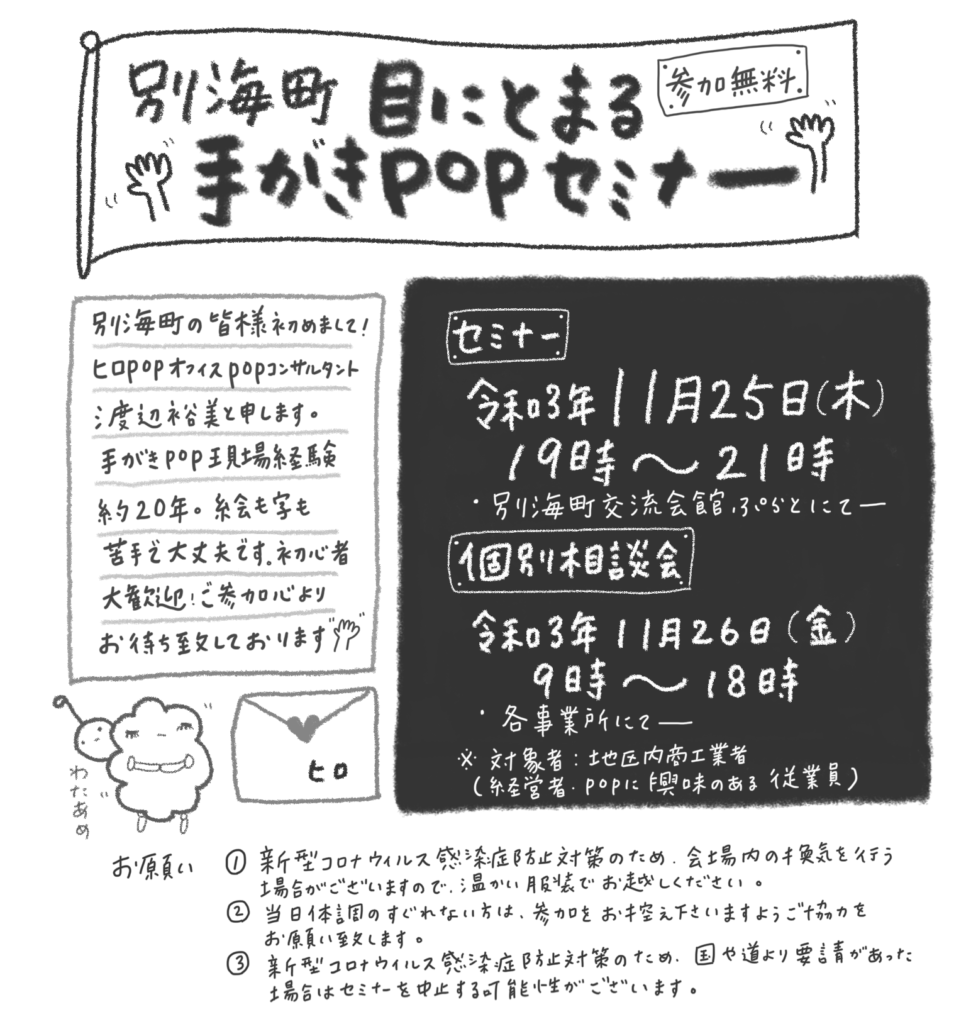 別海町 目にとまる
参加無料
手がきPOPセミナー
別海町の皆様初めまして!
ヒロpopオフィスpopコンサルタント
渡辺裕美と申します。
手がきpop現場経験
約20年。絵も字も
苦手で大丈夫です。初心者
大歓迎!ご参加心より
お待ち致しております
わたあめ
ヒロ
セミナー
令和3年11月25日(木)
19時〜21時
・別海町交流会館ぷらとにてー
個別相談会
令和3年11月26日(金)
9時〜18時
・各事業所にてー
※対象者:地区内商工業者
(経営者.popに興味のある従業員)
お願い
① 新型コロナウィルス感染症防止対策のため、会場内の換気を行う
場合がございますので、温かい服装でお越しください。
② 当日体調のすぐれない方は、参加をお控え下さいますようご協力を
お願い致します。
③ 新型コロナウィルス感染症防止対策のため、国や道より要請があった
場合はセミナーを中止する可能性がございます。